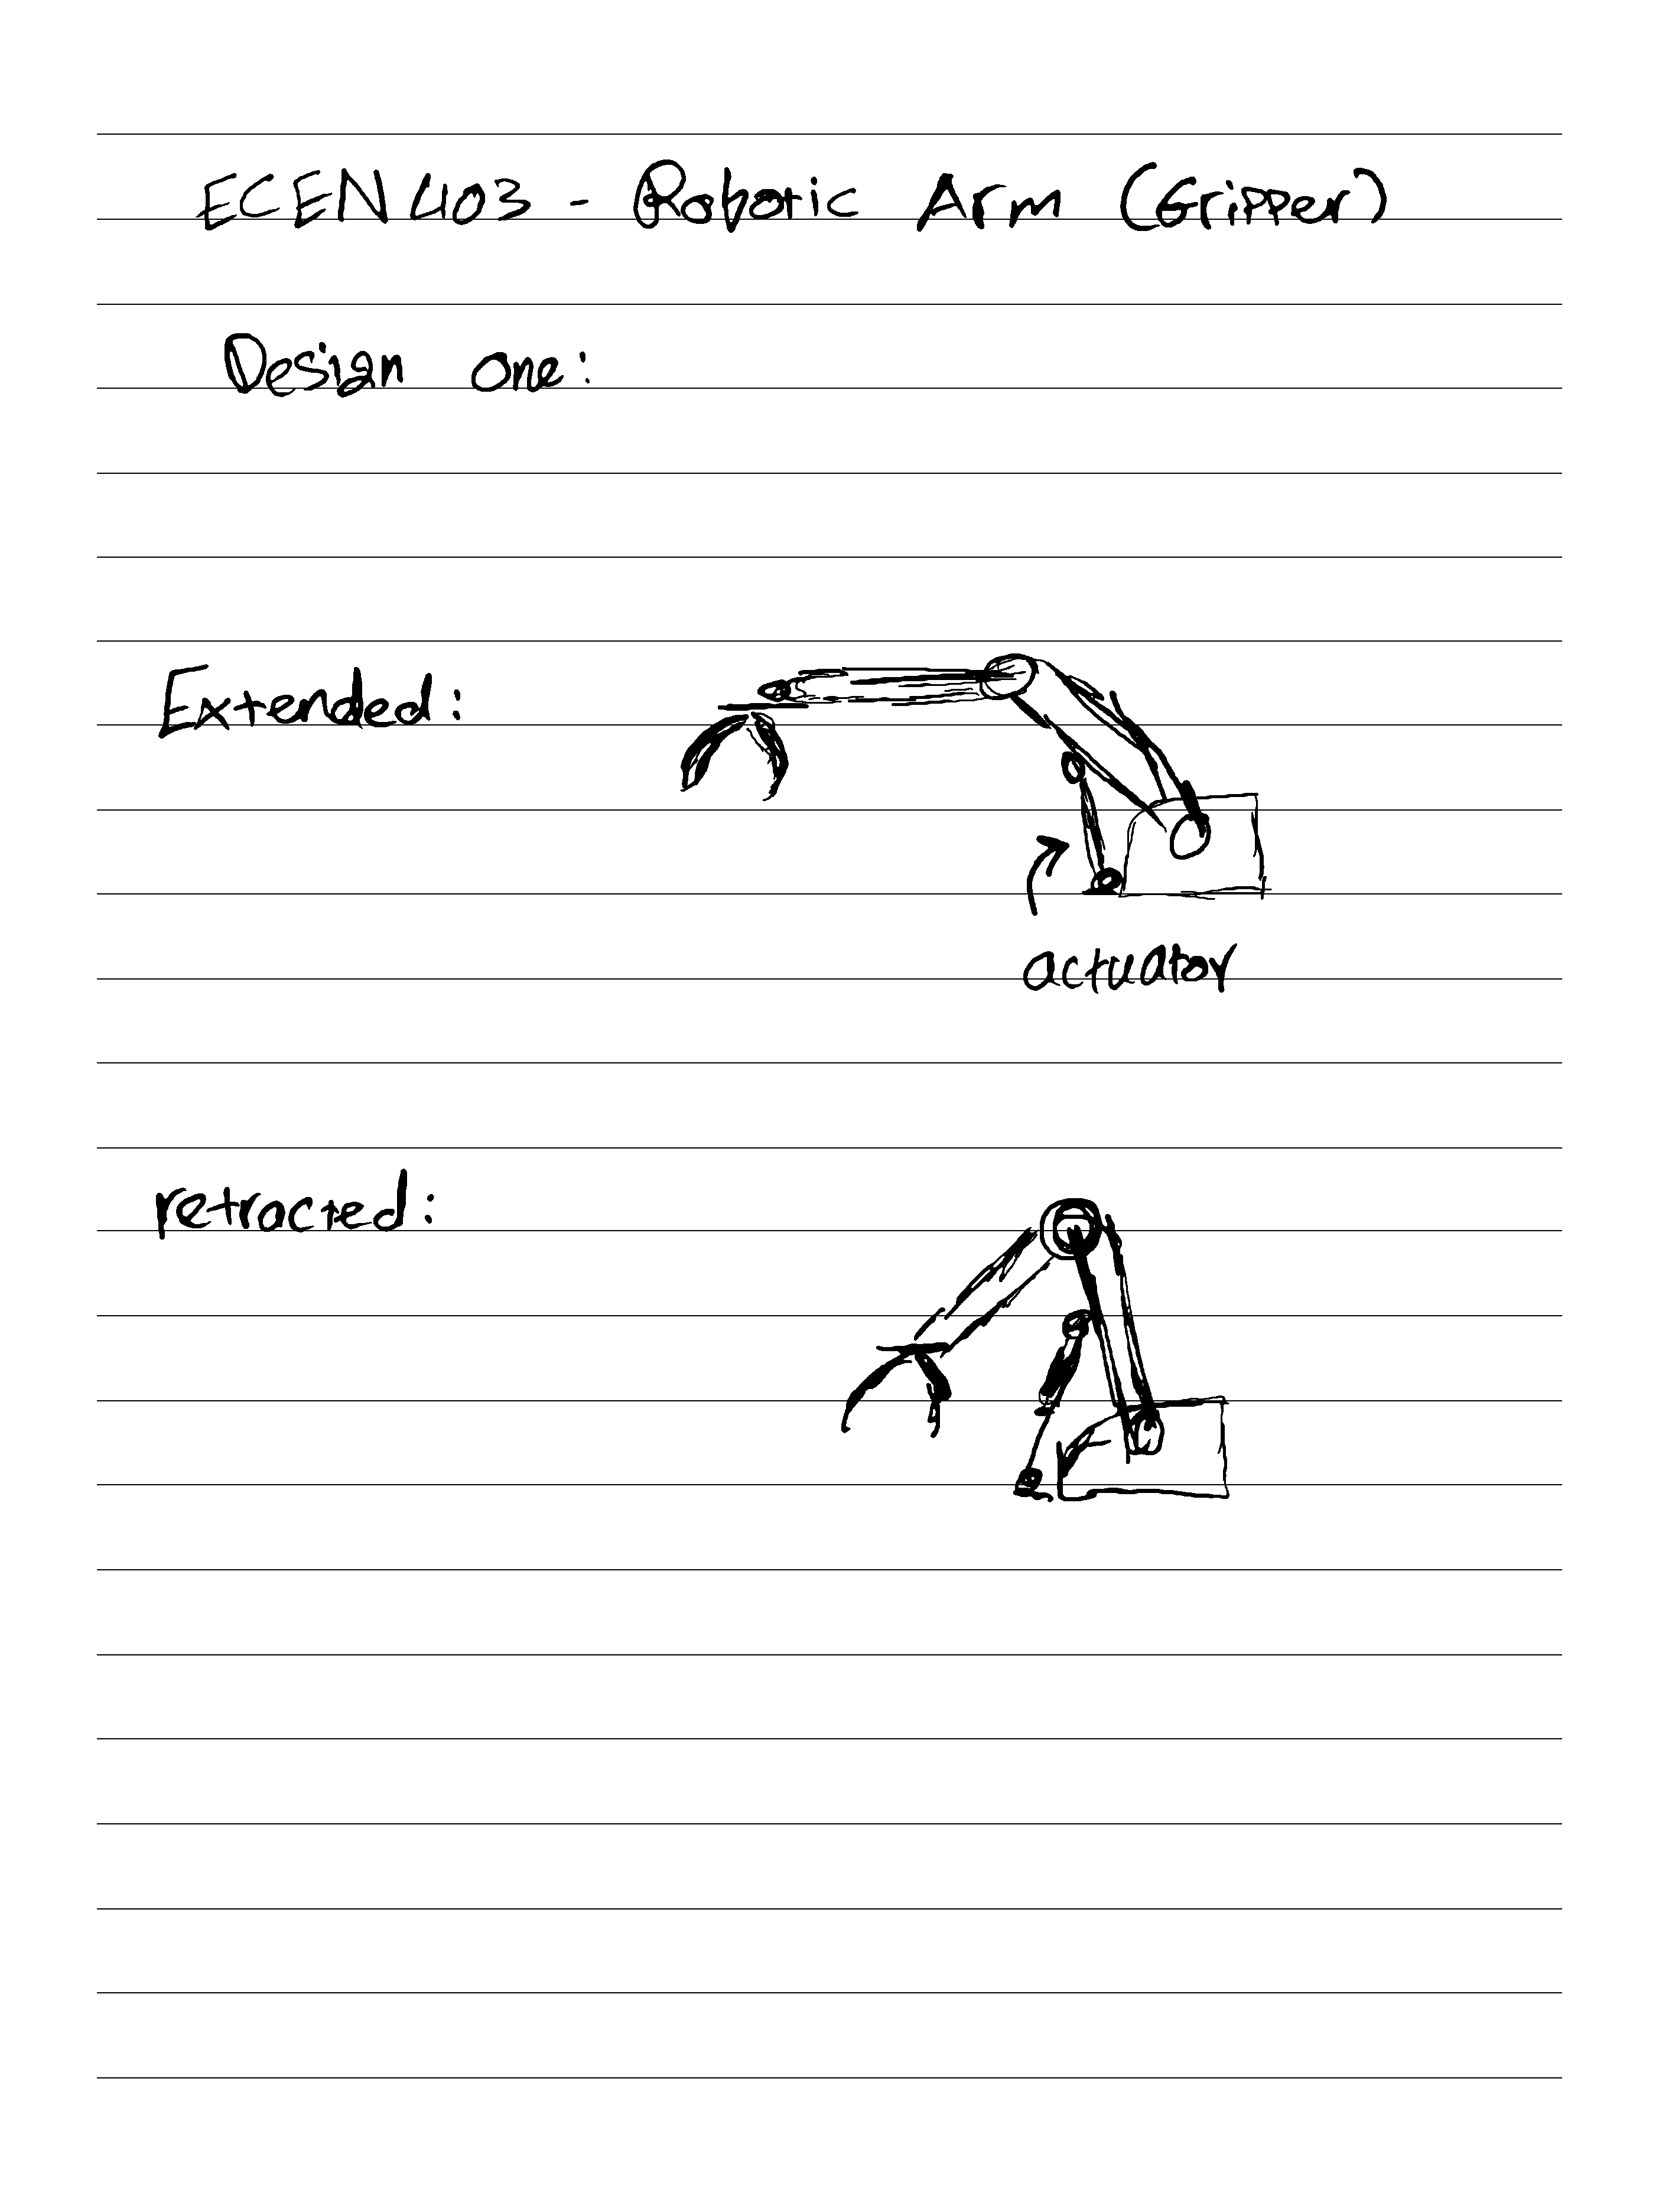 ECEN 403 - Robotic Arm (Gripper)
Design one:
Extended:
actuator
retracted: